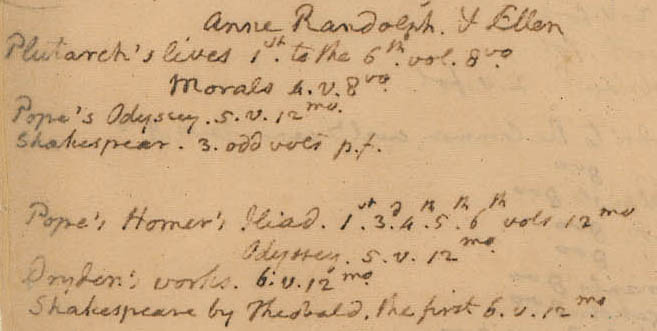 Anne Randolph. & Ellen
Plutarch's lives 1st. to the 6th. vol. 8vo
Morals 4. v. 8vo.
Pope's Odyssey. 5. v. 12mo.
Shakespear. 3. odd vols p.f.
Pope's Homer's Iliad. 1st 3d 4th 5th 6th vols 12mo
Odyssey. 5. v. 12mo.
Dryden's works. 6. v. 12mo.
Shakespeare by Theobald. the first 6. v. 12mo.